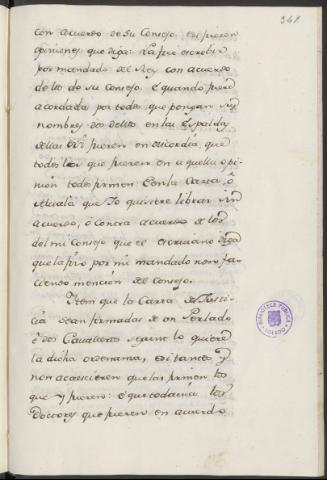 341
con acuerdo de Su Consejo. E si fueren
opiniones que diga: La fiz escrebir
por mandado del Rey con acuerdo
de los de su Consejo. E quando fuere
acordada por todos que pongan sus
nombres dos de ellos en las Espaldas
fueren en discordia que
todos los que fueren en aquella opi-
nión todos firmen. En la Carta, ó
Alvalá que Yo quisiere librar sin
acuerdo, ó contra acuerdo de los
del mi Consejo que el Escrivano diga
que la fizo por mi mandado non fa-
ciendo mención del Consejo.
Item que la Carta de Justi-
cia sean firmadas de un Perlado
é dos Cavalleros segunt lo quiere
la dicha ordenanza, é si tantos y
non acaescieren que las firmen los
que y fueren: é que todavia los
Doctores que fueren en acuerdo
BIBLIOTECA PÚBLICA
TOLEDO